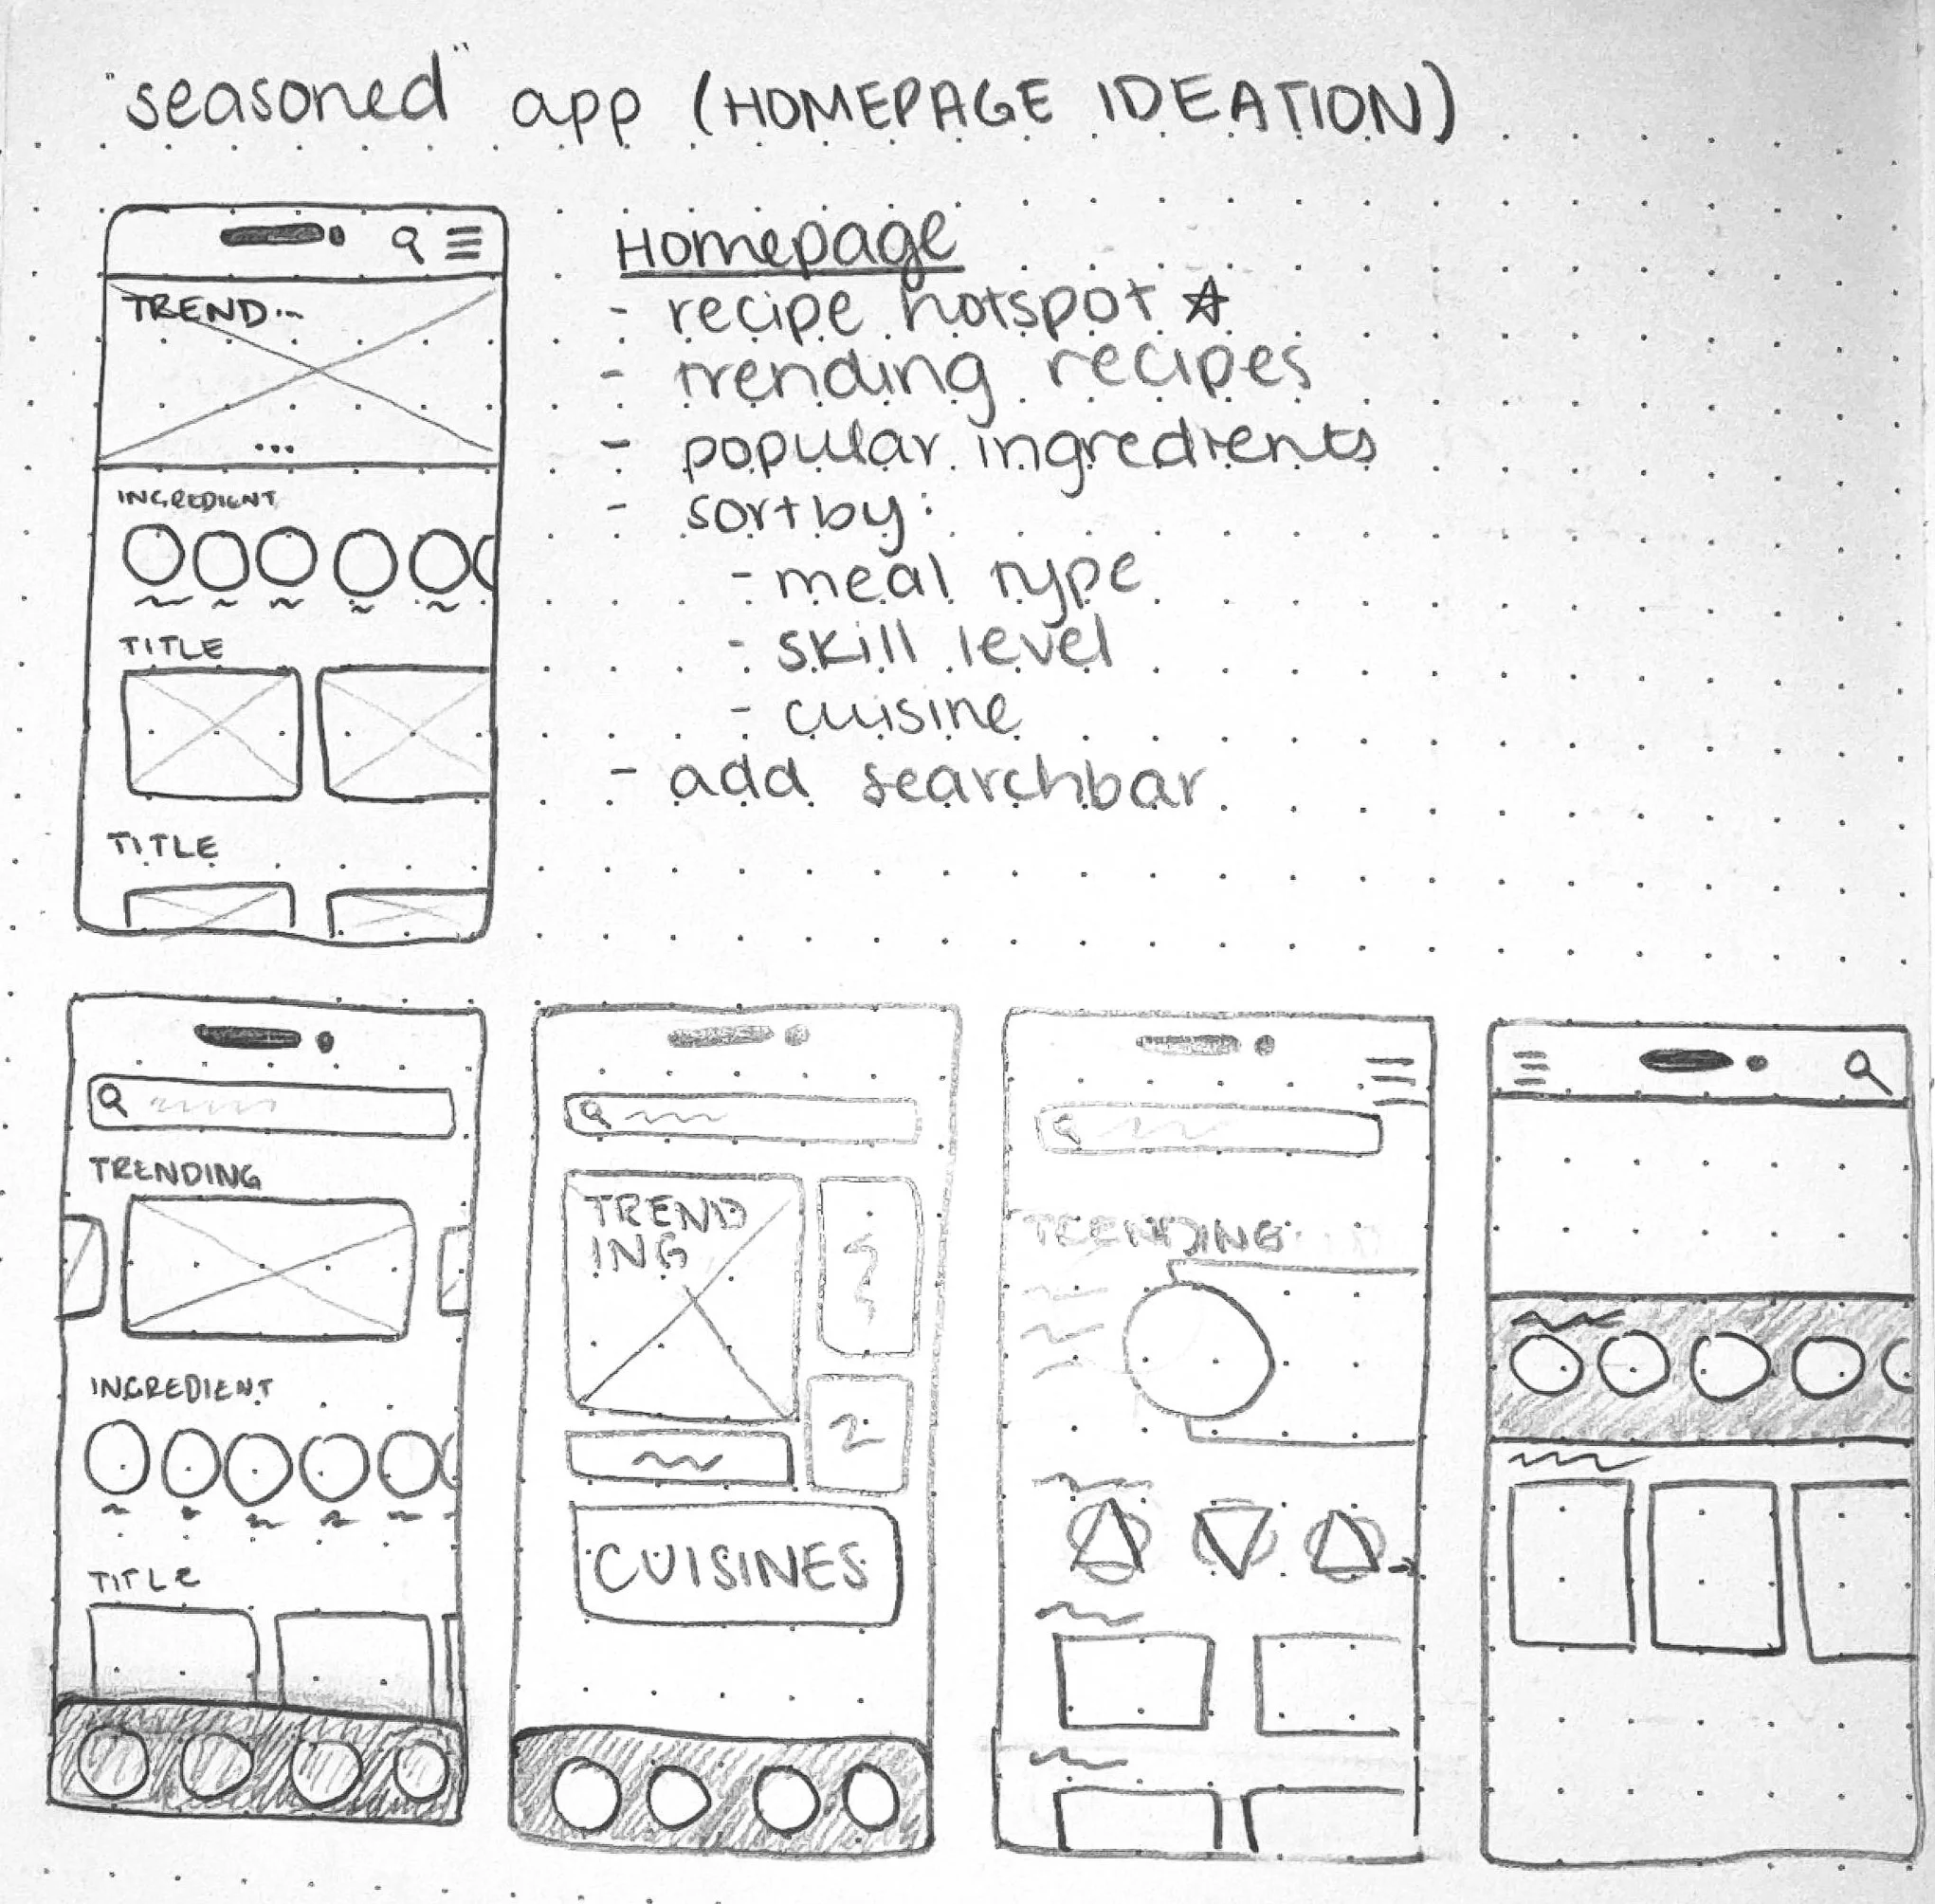 "seasoned" app (HOMEPAGE IDEATION)
Homepage
- recipe hotspot ☆
- trending recipes
- popular ingredients
- sort by:
- meal type
- skill level
- cuisine
- add searchbar
TREND...
...
INGREDIENT
TITLE
TITLE
TRENDING
INGREDIENT
TITLE
TREND
ING
2
CUISINES
TRENDING